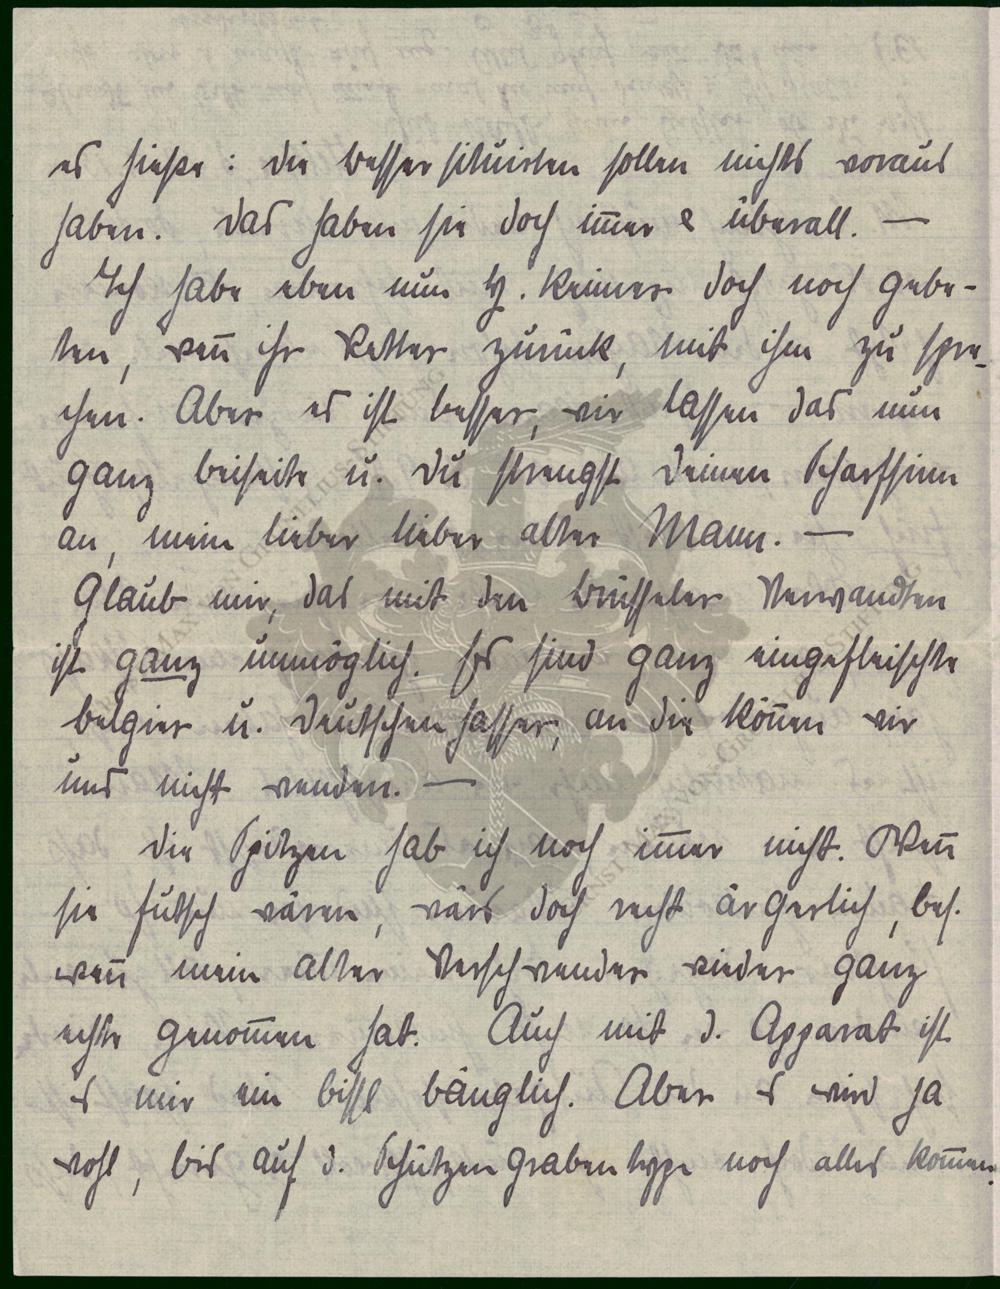 es hieße: die besser situirten sollen nichts voraus
haben. Das haben sie doch im̄er & überall. —
Ich habe eben nun H. Reimer doch noch gebe-
ten, wen̄ ihr Vetter zurück, mit ihm zu spre-
chen. Aber es ist besser, wir lassen das nun
ganz beiseite u. Du strengst Deinen Scharfsinn
an, mein lieber lieber alter Mann. —
Glaub mir, das mit den Brüsseler Verwandten
ist ganz unmöglich. Es sind ganz eingefleischte
Belgier u. Deutschenhasser, an die kön̄en wir
uns nicht wenden. —
Die Spitzen hab ich noch im̄er nicht. Wen̄
sie futsch wären, wärs doch recht ärgerlich, bes.
wen̄ mein alter Verschwender wieder ganz
echte genom̄en hat. Auch mit d. Apparat ist
es mir ein bissl bänglich. Aber es wird ja
wohl, bis auf d. Schützengrabentype noch alles kom̄en.